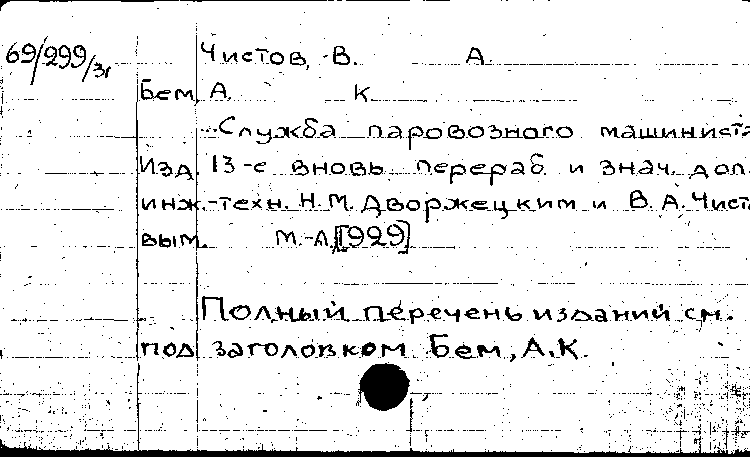 69/299/31
Чистов, В. А.
Бем, А. К.
Служба паровозного машиниста
Изд. 13-е вновь перераб. и знач. доп.
инж.-техн. Н.М. Дворжецким и В.А. Чисто
вым. М.-Л. [1929]
Полный перечень изданий см.
под заголовком Бем, А.К.